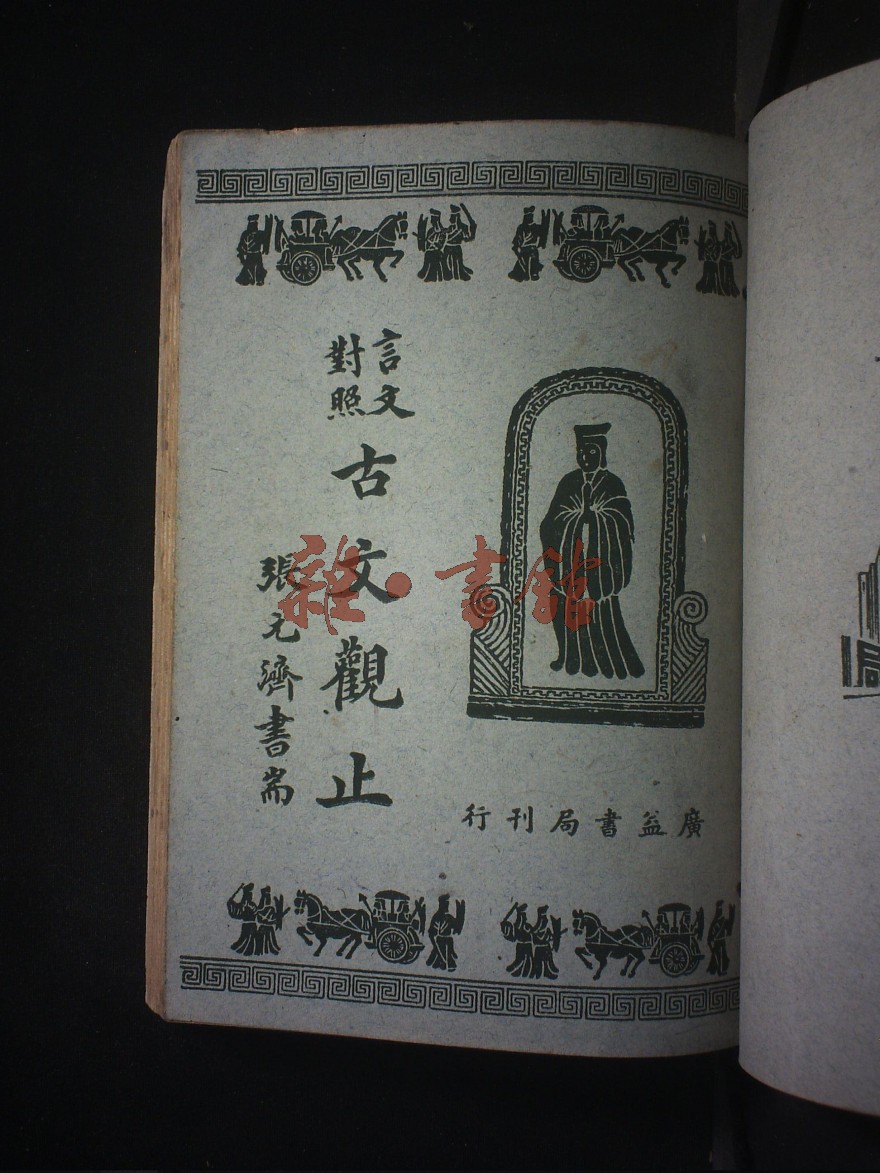 言文
對照
古文觀止
張元濟書耑
廣益書局刊行
雜·書館
局